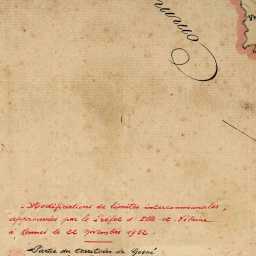 Commu
Modifications de limites intercommunales,
approuvées par le Préfet d'Ille et Vilaine
à Rennes le 22 Novembre 1952.
Partie du territoire de Gosné